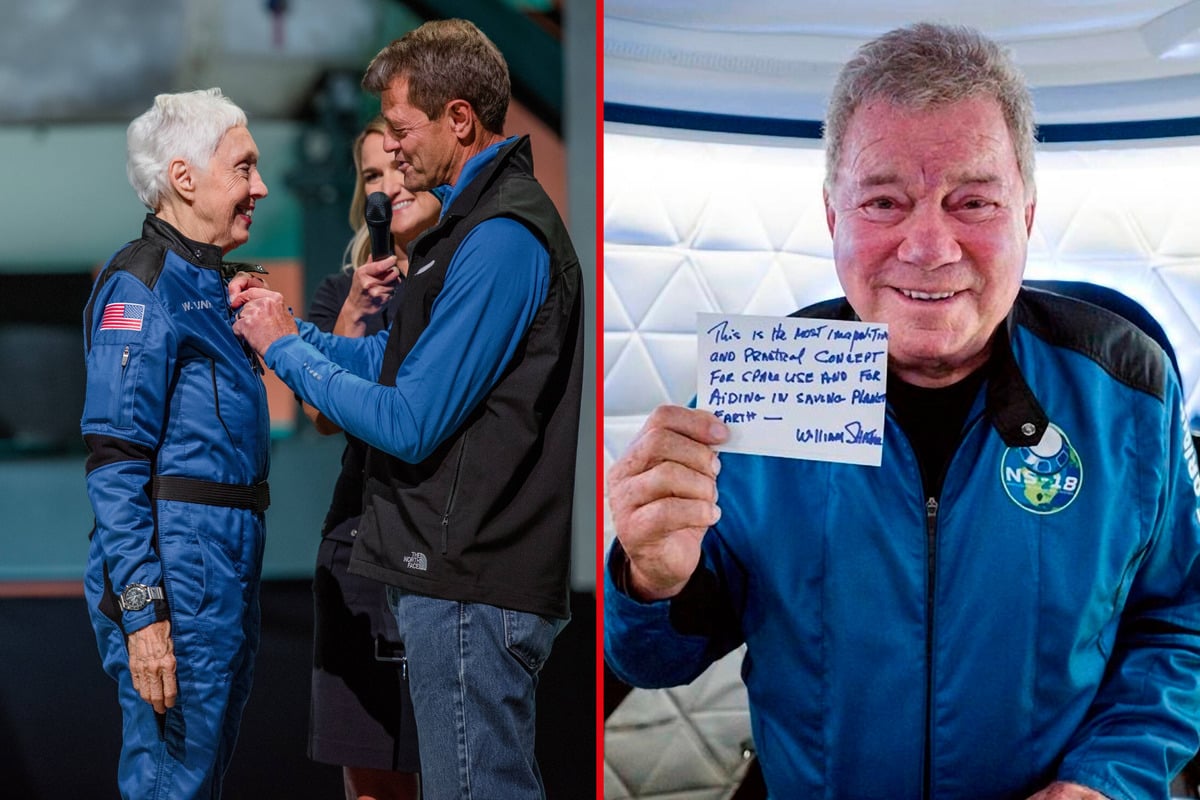 W.
THE
NORTH
FACE
This is the most
and practical concept
for space use and for
aiding in saving planet
Earth —
William Shatner
NS-18